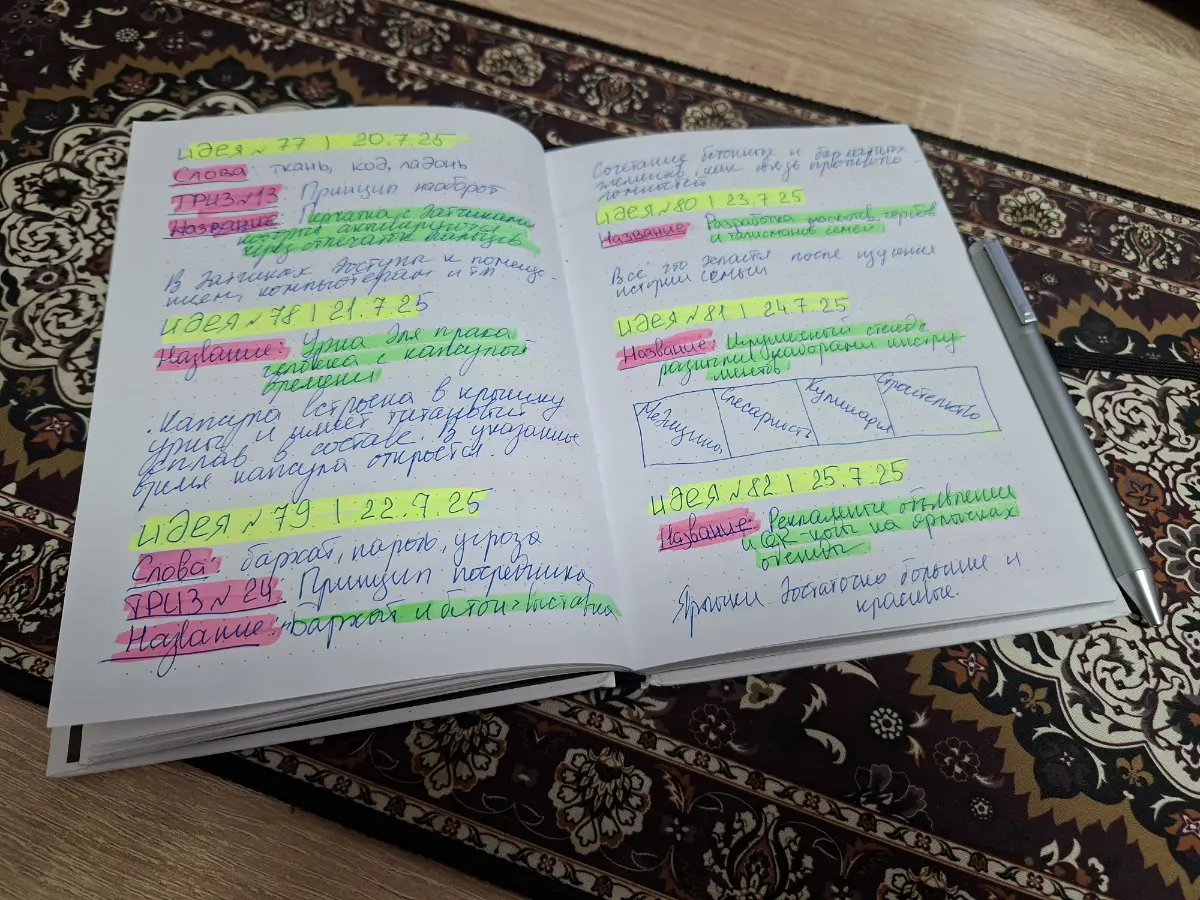 идея №77 | 20.7.25
Слова: ткань, код, ладонь
ТРИЗ №13: Принцип наоборот
Название: Перчатка с датчиками
которые активируются
через отпечаток пальцев
В датчиках доступы к помеще-
ниям, компьютерам и тп
идея №78 | 21.7.25
Название: Урна для праха
человека с капсулой
времени
.Капсула встроена в крышку
урны и имеет титановый
сплав в составе. В указанное
время капсула откроется.
идея №79 | 22.7.25
Слова: бархат, пароль, угроза
ТРИЗ №24: Принцип посредника
Название: Бархат и бетон-выставка
Сочетание бетонных и бархатных
элементов, как связь противопо-
ложностей
идея №80 | 23.7.25
Название: Разработка гербов
и талисманов семей
Всё, что делается после изучения
истории семьи
идея №81 | 24.7.25
Название: Игрушечный стенд с
различными наборами инстру-
ментов
Медицина
Слесарность
Кулинария
Строительство
идея №82 | 25.7.25
Название: Рекламные объявления
и QR-коды на ярлычках
одежды
Ярлычки достаточно большие и
красивые.